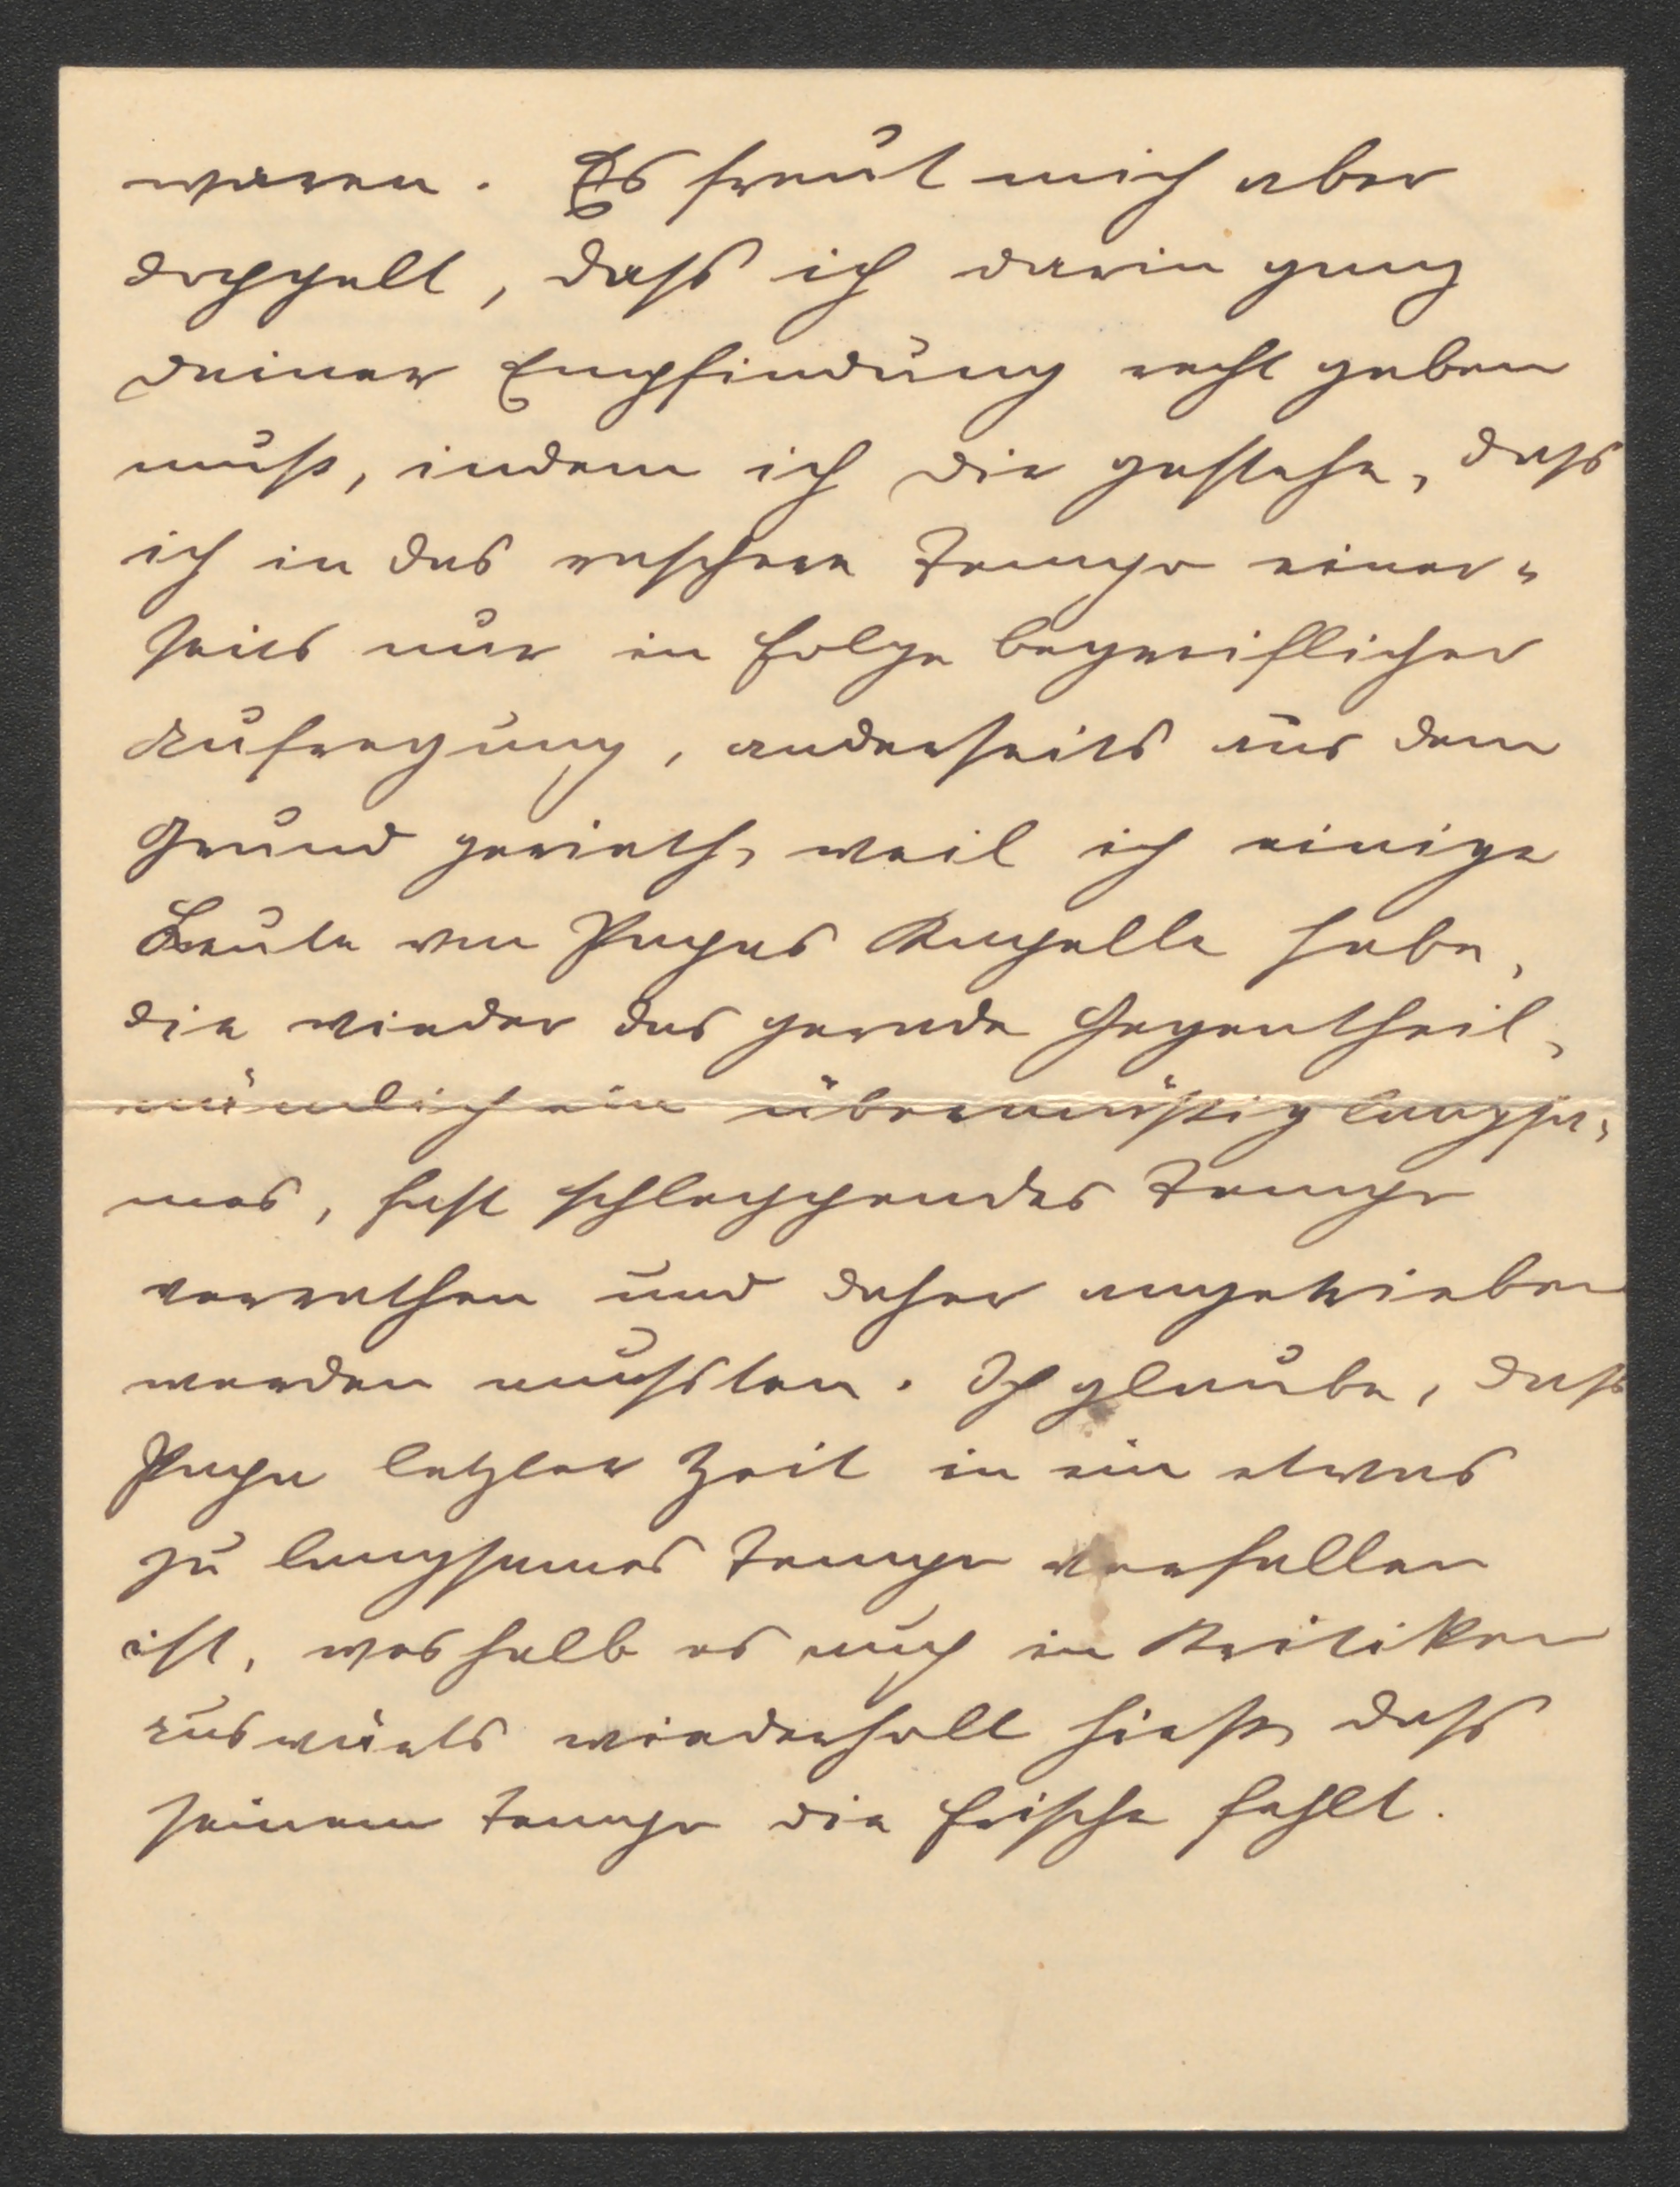 waren. Es freut mich aber
doppelt, dass ich darin ganz
deiner Empfindung recht geben
muß, indem ich dir gestehe, dass
ich in das raschere Tempo einer-
seits nur in Folge begreiflicher
Aufregung, anderseits aus dem
Grund gerieth, weil ich einige
Leute von Papas Kapelle habe,
die wieder das gerade Gegentheil,
nämlich ein übermäßig langsa-
mes, fast schleppendes Tempo
verrathen und daher angetrieben
werden mussten. Ich glaube, dass
Papa letzter Zeit in ein etwas
zu langsames Tempo verfallen
ist, weshalb es auch in Kritiken
auswärts wiederholt hieß, dass
seinem Tempo die Frische fehlt.